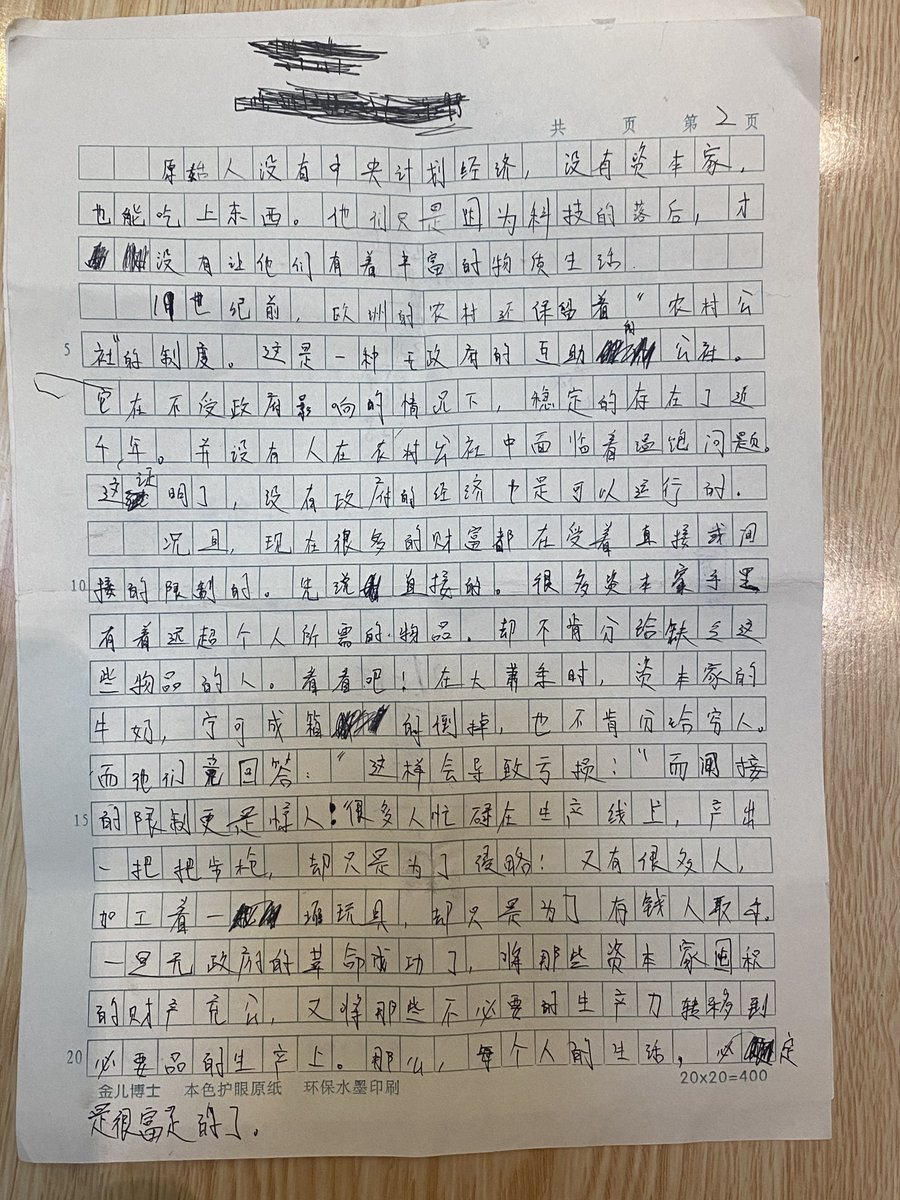 共 页 第2页
原始人没有中央计划经济，没有资本家，
也能吃上东西。他们只是因为科技的落后，才
没有让他们有着丰富的物质生活.
19世纪前，欧洲的农村还保留着“农村公
5 社”的制度。这是一种无政府的互助的公社。
它在不受政府影响的情况下，稳定的存在了近
千年。并没有人在农村公社中面临着温饱问题。
这证明了，没有政府的经济也是可以运行的.
况且，现在很多的财富都在受着直接或间
10 接的限制的。先说直接的。很多资本家手里
有着远超个人所需的物品，却不肯分给缺乏这
些物品的人。看看吧！在大萧条时，资本家的
牛奶，宁可成箱的倒掉，也不肯分给穷人。
而他们竟回答：“这样会导致亏损！”而间接
15 的限制更是惊人！很多人忙碌在生产线上，产出
一把把步枪，却只是为了侵略！又有很多人，
加工着一堆玩具，却只是为了有钱人取乐.
一旦无政府的革命成功了，将那些资本家囤积
的财产充公，又将那些不必要的生产力转移到
20 必要品的生产上。那么，每个人的生活，必定
金儿博士 本色护眼原纸 环保水墨印刷 20x20=400
是很富足的了。